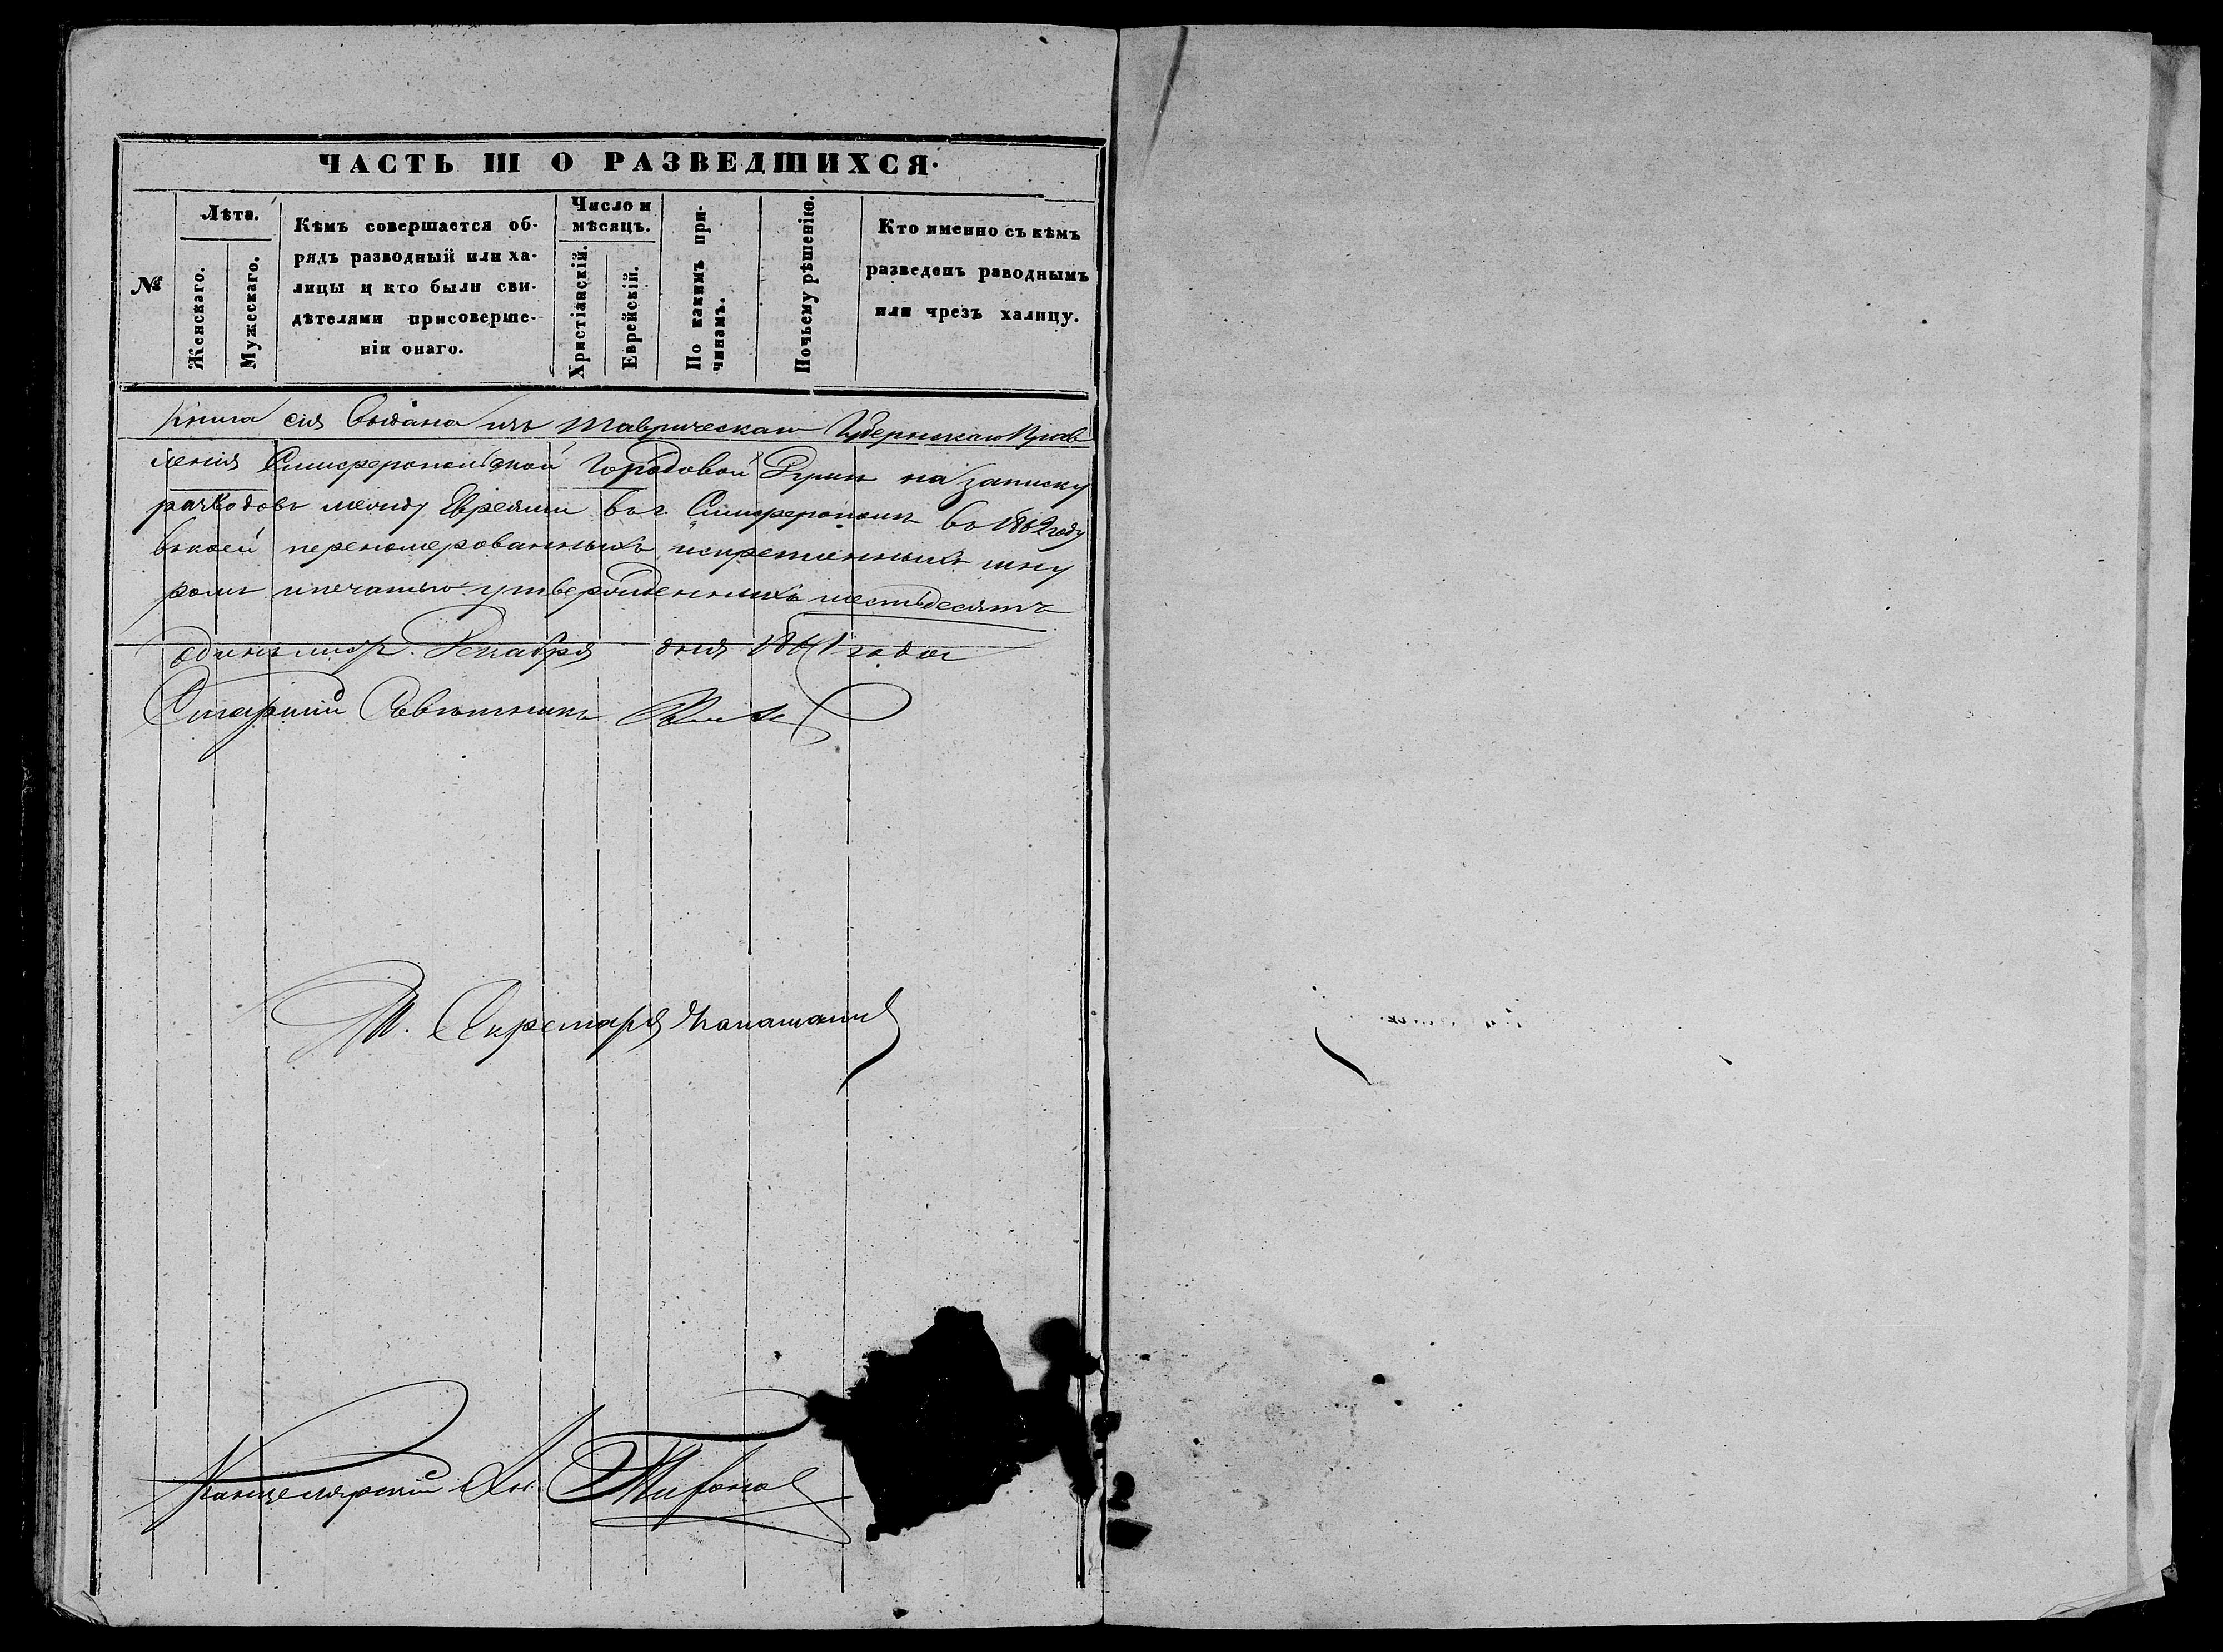 ЧАСТЬ III О РАЗВЕДШИХСЯ.
№
Лѣта.
Женскаго.
Мужескаго.
Кѣмъ совершается об-
рядъ разводный или ха-
лицы и кто были сви-
дѣтелями присоверше-
ніи онаго.
Число и
мѣсяцъ.
Христіанскій.
Еврейскій.
По какимъ при-
чинамъ.
Почьему рѣшенію.
Кто именно съ кѣмъ
разведенъ раводнымъ
или чрезъ халицу.
Книга сія выдана изъ Таврическаго Губернскаго Прав
ленія Симферопольской Городовой Думѣ на записку
разводовъ между Евреями въ г. Симферополѣ въ 1862 году
въ коей перенумерованныхъ и скрепленныхъ шну
ромъ и печатью утвержденныхъ шестьдесятъ
одинъ листъ. Декабря дня 1861 года
Старшій Совѣтникъ
Секретаря
Канцелярскій